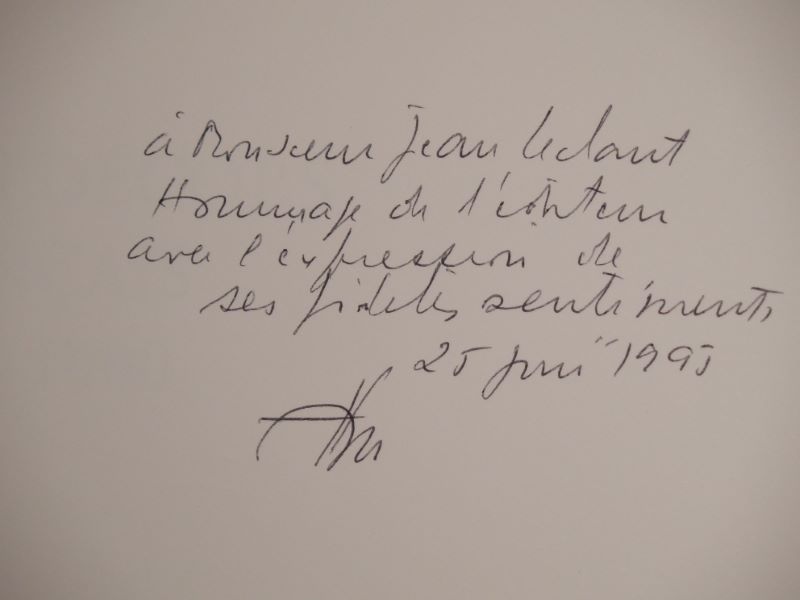 à Monsieur Jean Leclant
Hommage de l'éditeur
avec l'expression de
ses fidèles sentiments
25 juin 1995